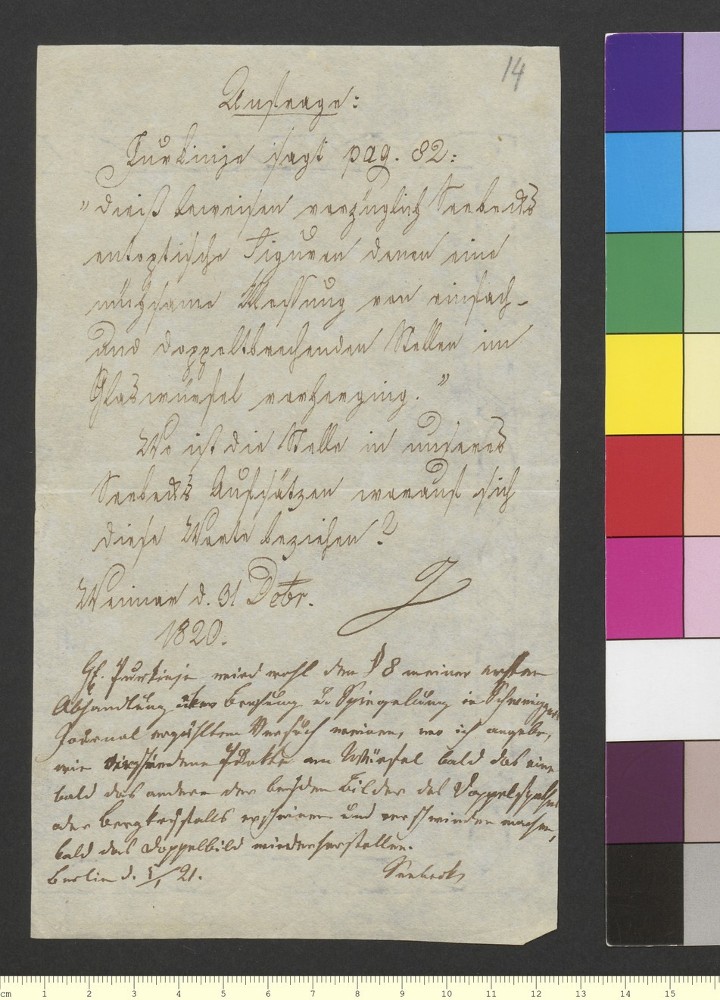 14
Anfrage:
Purkinje sagt pag. 82:
"dieß beweisen vorzüglich Seebecks
entoptische Figuren denen eine
mühsame Messung von einfach-
und doppeltbrechenden Stellen im
Glaswürfel vorherging."
Wo ist die Stelle in unseres
Seebecks Aufsätzen worauf sich
diese Worte beziehen?
Weimar d. 31 Decbr.
1820.
H. Purkinje wird wohl den § 8 meiner ersten
Abhandlung über Brechung u. Spiegelung in Schweiggers
Journal erzählten Versuch meinen, wo ich angebe,
wie verschiedene Punkte am Würfel bald das eine
bald das andere der beyden Bilder des Doppelspaths
oder Bergkrystalls erscheinen und verschwinden machen,
bald das Doppelbild wiederherstellen.
Berlin d. 21. Seebeck